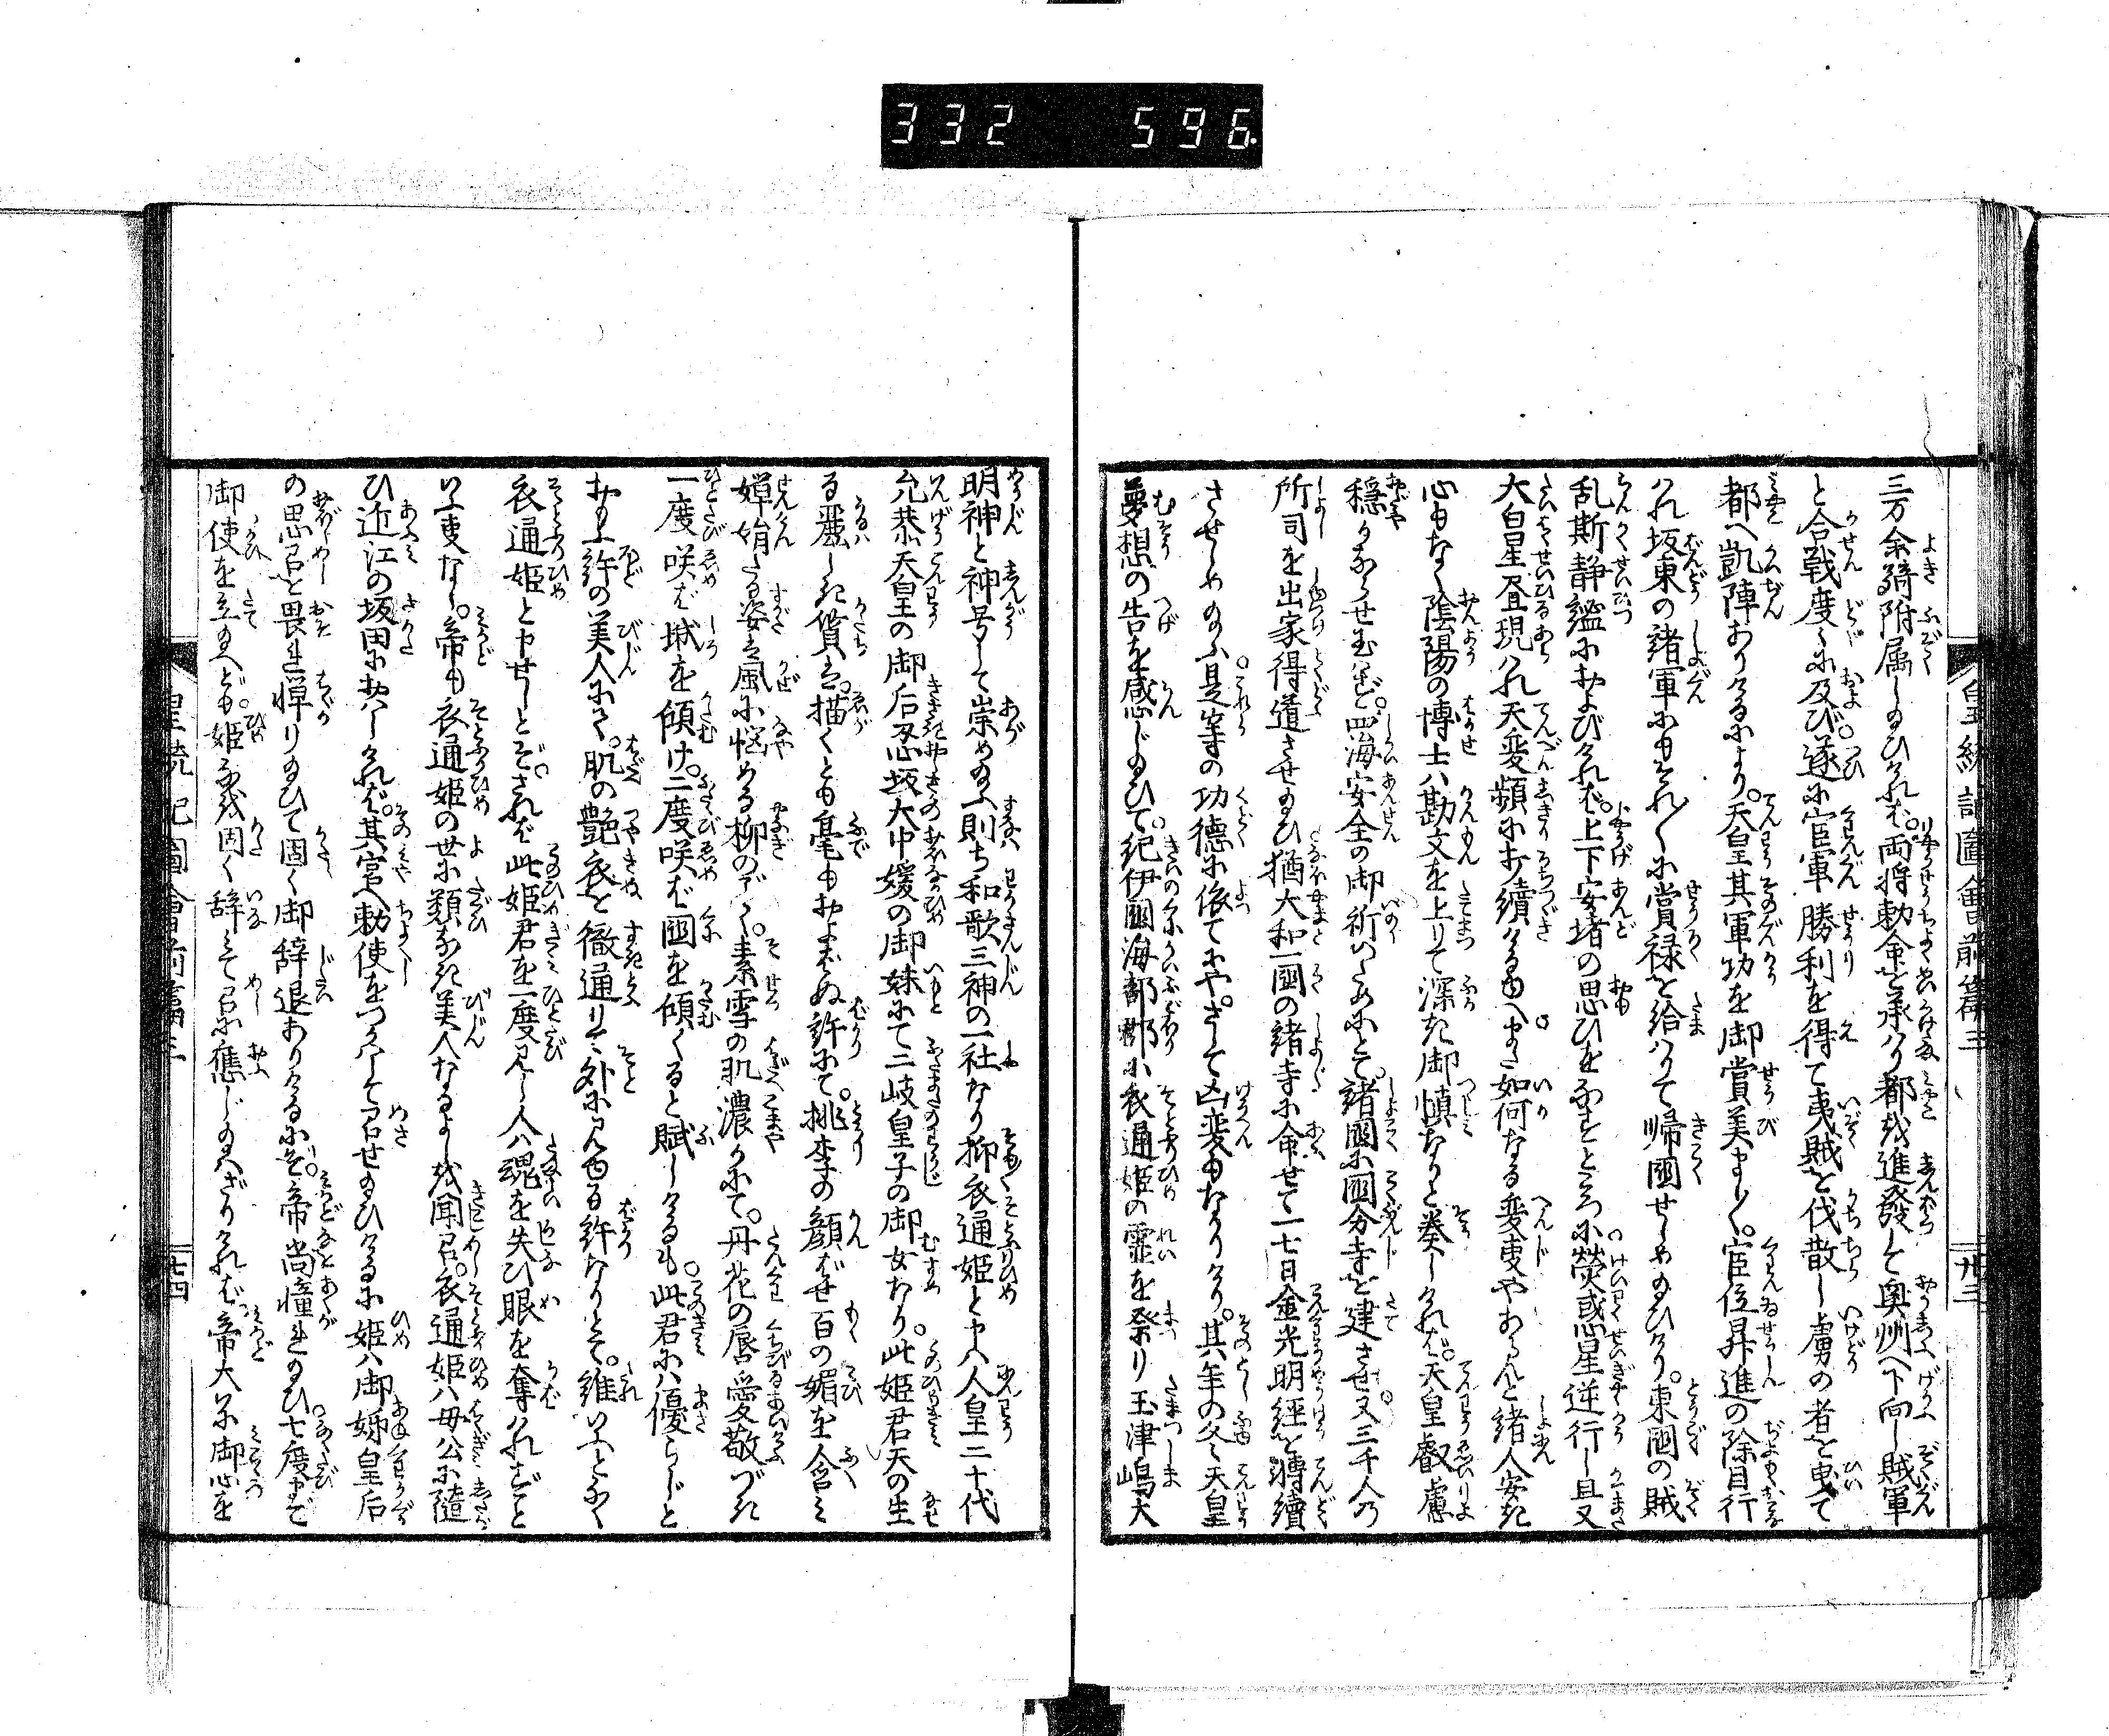 332 596.
皇統記圖會前篇三
廿三
三万余騎附属し給ひければ。両将勅命を承り都を進發して奥州へ下向し賊軍
と合戦度々に及び。遂に官軍勝利を得て夷賊を伐散し虜の者を曳て
都へ凱陣ありけるにより。天皇其軍功を御賞美まし〳〵。官位昇進の除目行
はれ坂東の諸軍にもそれ〳〵に賞禄を給はりて帰國せしめ給ひけり。東國の賊
乱斯静謐におよびければ。上下安堵の思ひをなすところに。熒惑星逆行し且又
大白星昼現はれ天変頻に打續けるゆへ。また如何なる変事やあらんと諸人安き
心もなく陰陽の博士ハ勘文を上りて深き御慎なりと奏しければ。天皇叡慮
穏かならせ玉はず。四海安全の御祈りのためにとて。諸國に國分寺を建させ。又三千人の
所司を出家得道させ給ひ猶大和一國の諸寺に命せて一七日金光明経を轉續
させしめ給ふ。是等の功德に依てにや。さして凶変もなかりけり。其年の冬天皇
夢想の告を感じ給ひて。紀伊國海部郡に衣通姫の霊を祭り玉津嶋大
明神と神号して崇め給ふ則ち和歌三神の一社なり抑衣通姫と申ハ人皇二十代
允恭天皇の御后忍坂大中媛の御妹にて二岐皇子の御女なり。此姫君天の生
る麗しき貨は。描くとも毫もおよばぬ許にて。桃李の顔ばせ百の媚を含ミ
嬋娟たる姿は風に悩める柳のごとく。素雪の肌濃かにて。丹花の唇愛敬づき
一度咲ば城を傾け。二度咲ば國を傾くると賦しけるも。此君にハ優らじと
おもふ許の美人にて。肌の艶衣を徹通りて外に見ゆる許なりとて。誰いふとなく
衣通姫と申せしとぞ。されば此姫君を一度見し人ハ魂を失ひ眼を奪はれずと
いふ事なし。帝も衣通姫の世に類なき美人なるよしを聞召。衣通姫ハ母公に隨
ひ近江の坂田におはしければ。其宮へ勅使をつかはして召せ給ひけるに姫ハ御姉皇后
の思召を畏れ憚り給ひて固く御辞退ありけるにぞ。帝尚憧れ給ひ。七度まで
御使を立給へども。姫なを固く辞ミて召に應じ給はざりければ。帝大に御心を
皇統記圖會前篇三
廿四